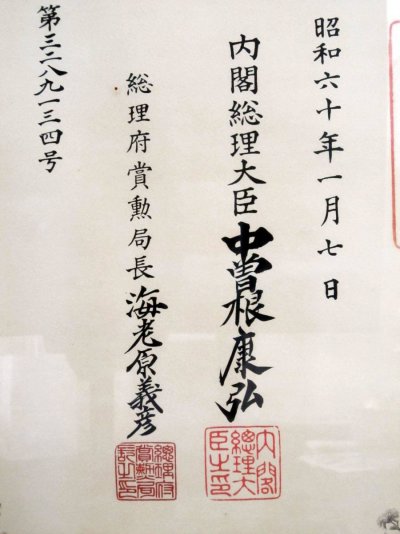 昭和六十年一月七日
内閣総理大臣 中曽根康弘
内閣総理大臣之印
総理府賞勲局長 海老原義彦
總理府賞勲局長之印
第三二八九一三四号